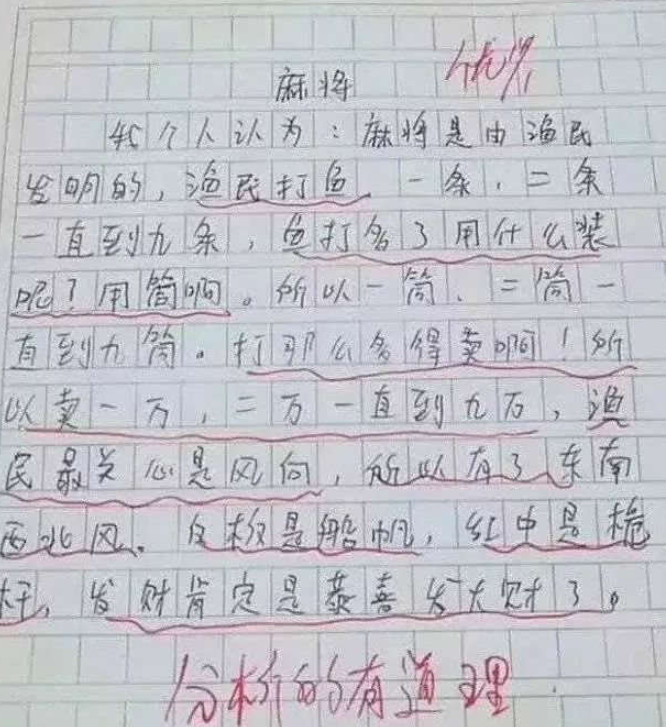 优
麻将
我个人认为：麻将是由渔民
发明的，渔民打鱼，一条，二条
一直到九条，鱼打多了用什么装
呢？用筒啊。所以一筒、二筒一
直到九筒。打那么多得卖啊！所
以卖一万，二万一直到九万，渔
民最关心是风向，所以有了东南
西北风、白板是船帆，红中是桅
杆，发财肯定是恭喜发大财了。
分析的有道理